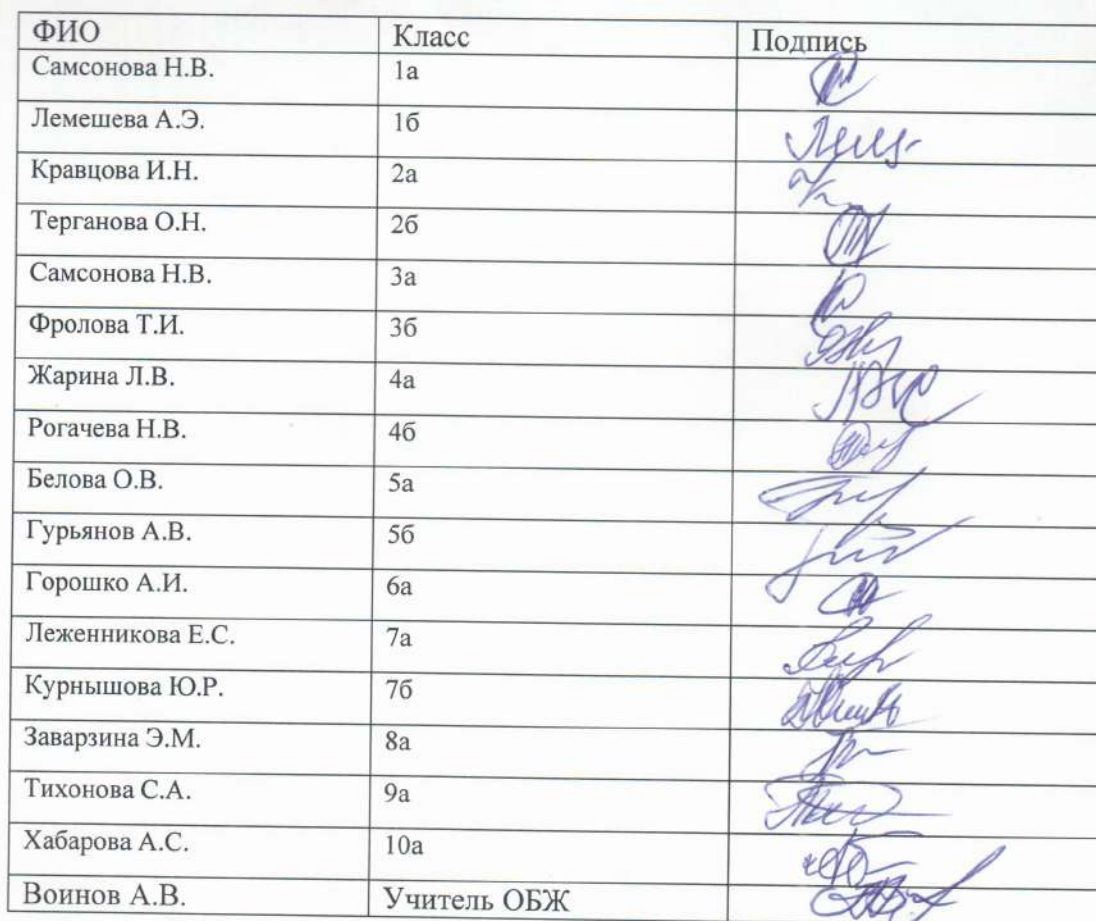 ФИО Класс Подпись
Самсонова Н.В. 1а
Лемешева А.Э. 1б
Кравцова И.Н. 2а
Терганова О.Н. 2б
Самсонова Н.В. 3а
Фролова Т.И. 3б
Жарина Л.В. 4а
Рогачева Н.В. 4б
Белова О.В. 5а
Гурьянов А.В. 5б
Горошко А.И. 6а
Леженникова Е.С. 7а
Курнышова Ю.Р. 7б
Заварзина Э.М. 8а
Тихонова С.А. 9а
Хабарова А.С. 10а
Воинов А.В. Учитель ОБЖ